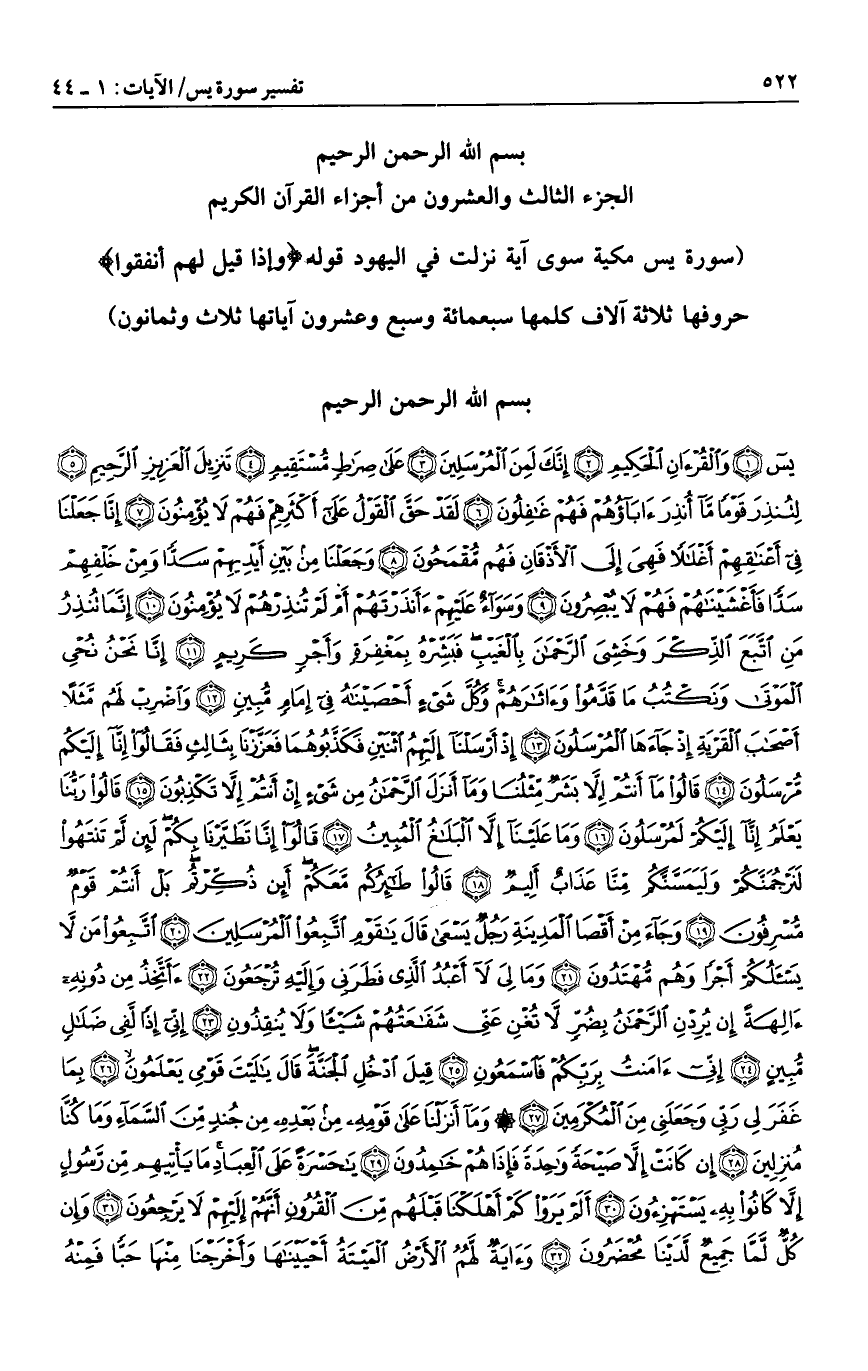 ٥٢٢ تفسير سورة يس/ الآيات: ١ ـ ٤٤
بسم الله الرحمن الرحيم
الجزء الثالث والعشرون من أجزاء القرآن الكريم
(سورة يس مكية سوى آية نزلت في اليهود قوله ﴿وإذا قيل لهم أنفقوا﴾
حروفها ثلاثة آلاف كلمها سبعمائة وسبع وعشرون آياتها ثلاث وثمانون)
بسم الله الرحمن الرحيم
يسٓ ﴿١﴾ وَٱلْقُرْءَانِ ٱلْحَكِيمِ ﴿٢﴾ إِنَّكَ لَمِنَ ٱلْمُرْسَلِينَ ﴿٣﴾ عَلَىٰ صِرَٰطٍ مُّسْتَقِيمٍ ﴿٤﴾ تَنزِيلَ ٱلْعَزِيزِ ٱلرَّحِيمِ ﴿٥﴾
لِتُنذِرَ قَوْمًا مَّآ أُنذِرَ ءَابَآؤُهُمْ فَهُمْ غَٰفِلُونَ ﴿٦﴾ لَقَدْ حَقَّ ٱلْقَوْلُ عَلَىٰٓ أَكْثَرِهِمْ فَهُمْ لَا يُؤْمِنُونَ ﴿٧﴾ إِنَّا جَعَلْنَا
فِىٓ أَعْنَٰقِهِمْ أَغْلَٰلًا فَهِىَ إِلَى ٱلْأَذْقَانِ فَهُم مُّقْمَحُونَ ﴿٨﴾ وَجَعَلْنَا مِنۢ بَيْنِ أَيْدِيهِمْ سَدًّا وَمِنْ خَلْفِهِمْ
سَدًّا فَأَغْشَيْنَٰهُمْ فَهُمْ لَا يُبْصِرُونَ ﴿٩﴾ وَسَوَآءٌ عَلَيْهِمْ ءَأَنذَرْتَهُمْ أَمْ لَمْ تُنذِرْهُمْ لَا يُؤْمِنُونَ ﴿١٠﴾ إِنَّمَا تُنذِرُ
مَنِ ٱتَّبَعَ ٱلذِّكْرَ وَخَشِىَ ٱلرَّحْمَٰنَ بِٱلْغَيْبِ ۖ فَبَشِّرْهُ بِمَغْفِرَةٍ وَأَجْرٍ كَرِيمٍ ﴿١١﴾ إِنَّا نَحْنُ نُحْىِ
ٱلْمَوْتَىٰ وَنَكْتُبُ مَا قَدَّمُوا۟ وَءَاثَٰرَهُمْ ۚ وَكُلَّ شَىْءٍ أَحْصَيْنَٰهُ فِىٓ إِمَامٍ مُّبِينٍ ﴿١٢﴾ وَٱضْرِبْ لَهُم مَّثَلًا
أَصْحَٰبَ ٱلْقَرْيَةِ إِذْ جَآءَهَا ٱلْمُرْسَلُونَ ﴿١٣﴾ إِذْ أَرْسَلْنَآ إِلَيْهِمُ ٱثْنَيْنِ فَكَذَّبُوهُمَا فَعَزَّزْنَا بِثَالِثٍ فَقَالُوٓا۟ إِنَّآ إِلَيْكُم
مُّرْسَلُونَ ﴿١٤﴾ قَالُوا۟ مَآ أَنتُمْ إِلَّا بَشَرٌ مِّثْلُنَا وَمَآ أَنزَلَ ٱلرَّحْمَٰنُ مِن شَىْءٍ إِنْ أَنتُمْ إِلَّا تَكْذِبُونَ ﴿١٥﴾ قَالُوا۟ رَبُّنَا
يَعْلَمُ إِنَّآ إِلَيْكُمْ لَمُرْسَلُونَ ﴿١٦﴾ وَمَا عَلَيْنَآ إِلَّا ٱلْبَلَٰغُ ٱلْمُبِينُ ﴿١٧﴾ قَالُوٓا۟ إِنَّا تَطَيَّرْنَا بِكُمْ ۖ لَئِن لَّمْ تَنتَهُوا۟
لَنَرْجُمَنَّكُمْ وَلَيَمَسَّنَّكُم مِّنَّا عَذَابٌ أَلِيمٌ ﴿١٨﴾ قَالُوا۟ طَٰٓئِرُكُم مَّعَكُمْ ۚ أَئِن ذُكِّرْتُم ۚ بَلْ أَنتُمْ قَوْمٌ
مُّسْرِفُونَ ﴿١٩﴾ وَجَآءَ مِنْ أَقْصَا ٱلْمَدِينَةِ رَجُلٌ يَسْعَىٰ قَالَ يَٰقَوْمِ ٱتَّبِعُوا۟ ٱلْمُرْسَلِينَ ﴿٢٠﴾ ٱتَّبِعُوا۟ مَن لَّا
يَسْـَٔلُكُمْ أَجْرًا وَهُم مُّهْتَدُونَ ﴿٢١﴾ وَمَا لِىَ لَآ أَعْبُدُ ٱلَّذِى فَطَرَنِى وَإِلَيْهِ تُرْجَعُونَ ﴿٢٢﴾ ءَأَتَّخِذُ مِن دُونِهِۦٓ
ءَالِهَةً إِن يُرِدْنِ ٱلرَّحْمَٰنُ بِضُرٍّ لَّا تُغْنِ عَنِّى شَفَٰعَتُهُمْ شَيْـًٔا وَلَا يُنقِذُونِ ﴿٢٣﴾ إِنِّىٓ إِذًا لَّفِى ضَلَٰلٍ
مُّبِينٍ ﴿٢٤﴾ إِنِّىٓ ءَامَنتُ بِرَبِّكُمْ فَٱسْمَعُونِ ﴿٢٥﴾ قِيلَ ٱدْخُلِ ٱلْجَنَّةَ ۖ قَالَ يَٰلَيْتَ قَوْمِى يَعْلَمُونَ ﴿٢٦﴾ بِمَا
غَفَرَ لِى رَبِّى وَجَعَلَنِى مِنَ ٱلْمُكْرَمِينَ ﴿٢٧﴾ ۞ وَمَآ أَنزَلْنَا عَلَىٰ قَوْمِهِۦ مِنۢ بَعْدِهِۦ مِن جُندٍ مِّنَ ٱلسَّمَآءِ وَمَا كُنَّا
مُنزِلِينَ ﴿٢٨﴾ إِن كَانَتْ إِلَّا صَيْحَةً وَٰحِدَةً فَإِذَا هُمْ خَٰمِدُونَ ﴿٢٩﴾ يَٰحَسْرَةً عَلَى ٱلْعِبَادِ ۚ مَا يَأْتِيهِم مِّن رَّسُولٍ
إِلَّا كَانُوا۟ بِهِۦ يَسْتَهْزِءُونَ ﴿٣٠﴾ أَلَمْ يَرَوْا۟ كَمْ أَهْلَكْنَا قَبْلَهُم مِّنَ ٱلْقُرُونِ أَنَّهُمْ إِلَيْهِمْ لَا يَرْجِعُونَ ﴿٣١﴾ وَإِن
كُلٌّ لَّمَّا جَمِيعٌ لَّدَيْنَا مُحْضَرُونَ ﴿٣٢﴾ وَءَايَةٌ لَّهُمُ ٱلْأَرْضُ ٱلْمَيْتَةُ أَحْيَيْنَٰهَا وَأَخْرَجْنَا مِنْهَا حَبًّا فَمِنْهُ